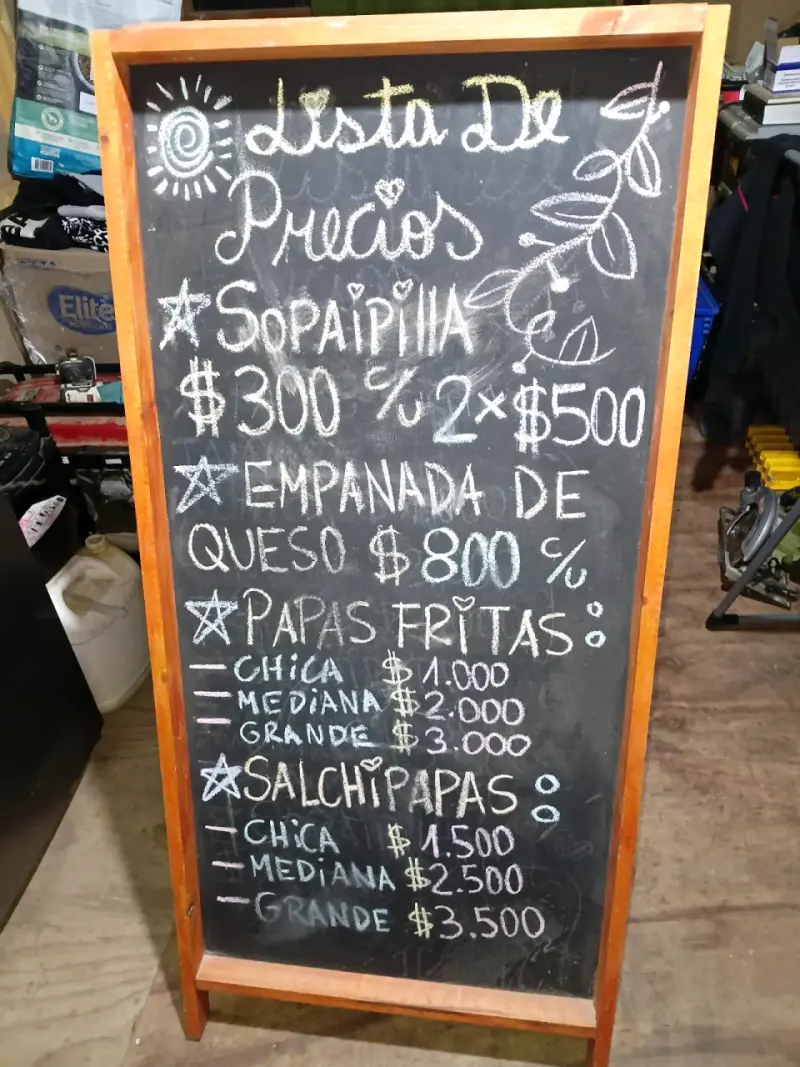 Lista De
Precios
SOPAiPillA
$300 c/u 2x$500
EMPANADA DE
QUESO $800 c/u
PAPAS FRiTAS:
- CHiCA $1.000
- MEDiANA $2.000
- GRANDE $3.000
SALCHiPAPAS:
- CHiCA $1.500
- MEDiANA $2.500
- GRANDE $3.500
Elite